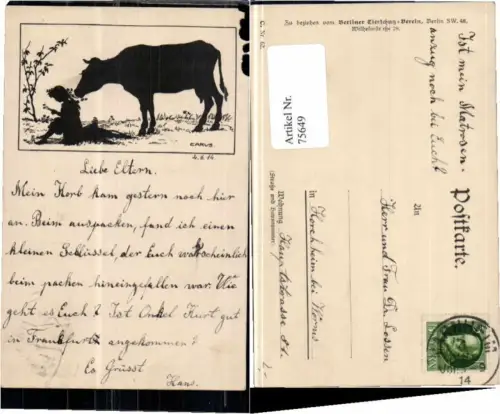 CARUS
4.6.14
Liebe Eltern.
Mein Korb kam gestern noch hier
an. Beim auspacken, fand ich einen
kleinen Schlüssel der Euch wahrscheinlich
beim packen hineingefallen war. Wie
geht es Euch? Ist Onkel Kurt gut
in Frankfurt angekommen?
Es Grüsst
Hans.
Zu beziehen vom Berliner Tierschutz-Verein, Berlin SW. 48.
Wilhelmstraße 28.
Artikel Nr.
75649
Ist mein Matrosen-
anzug noch bei Euch?
Postkarte.
An
Herr und Frau Dr. Lossen
in Horchheim bei Worms
Wohnung Hauptstrasse
(Straße und Hausnummer)
14